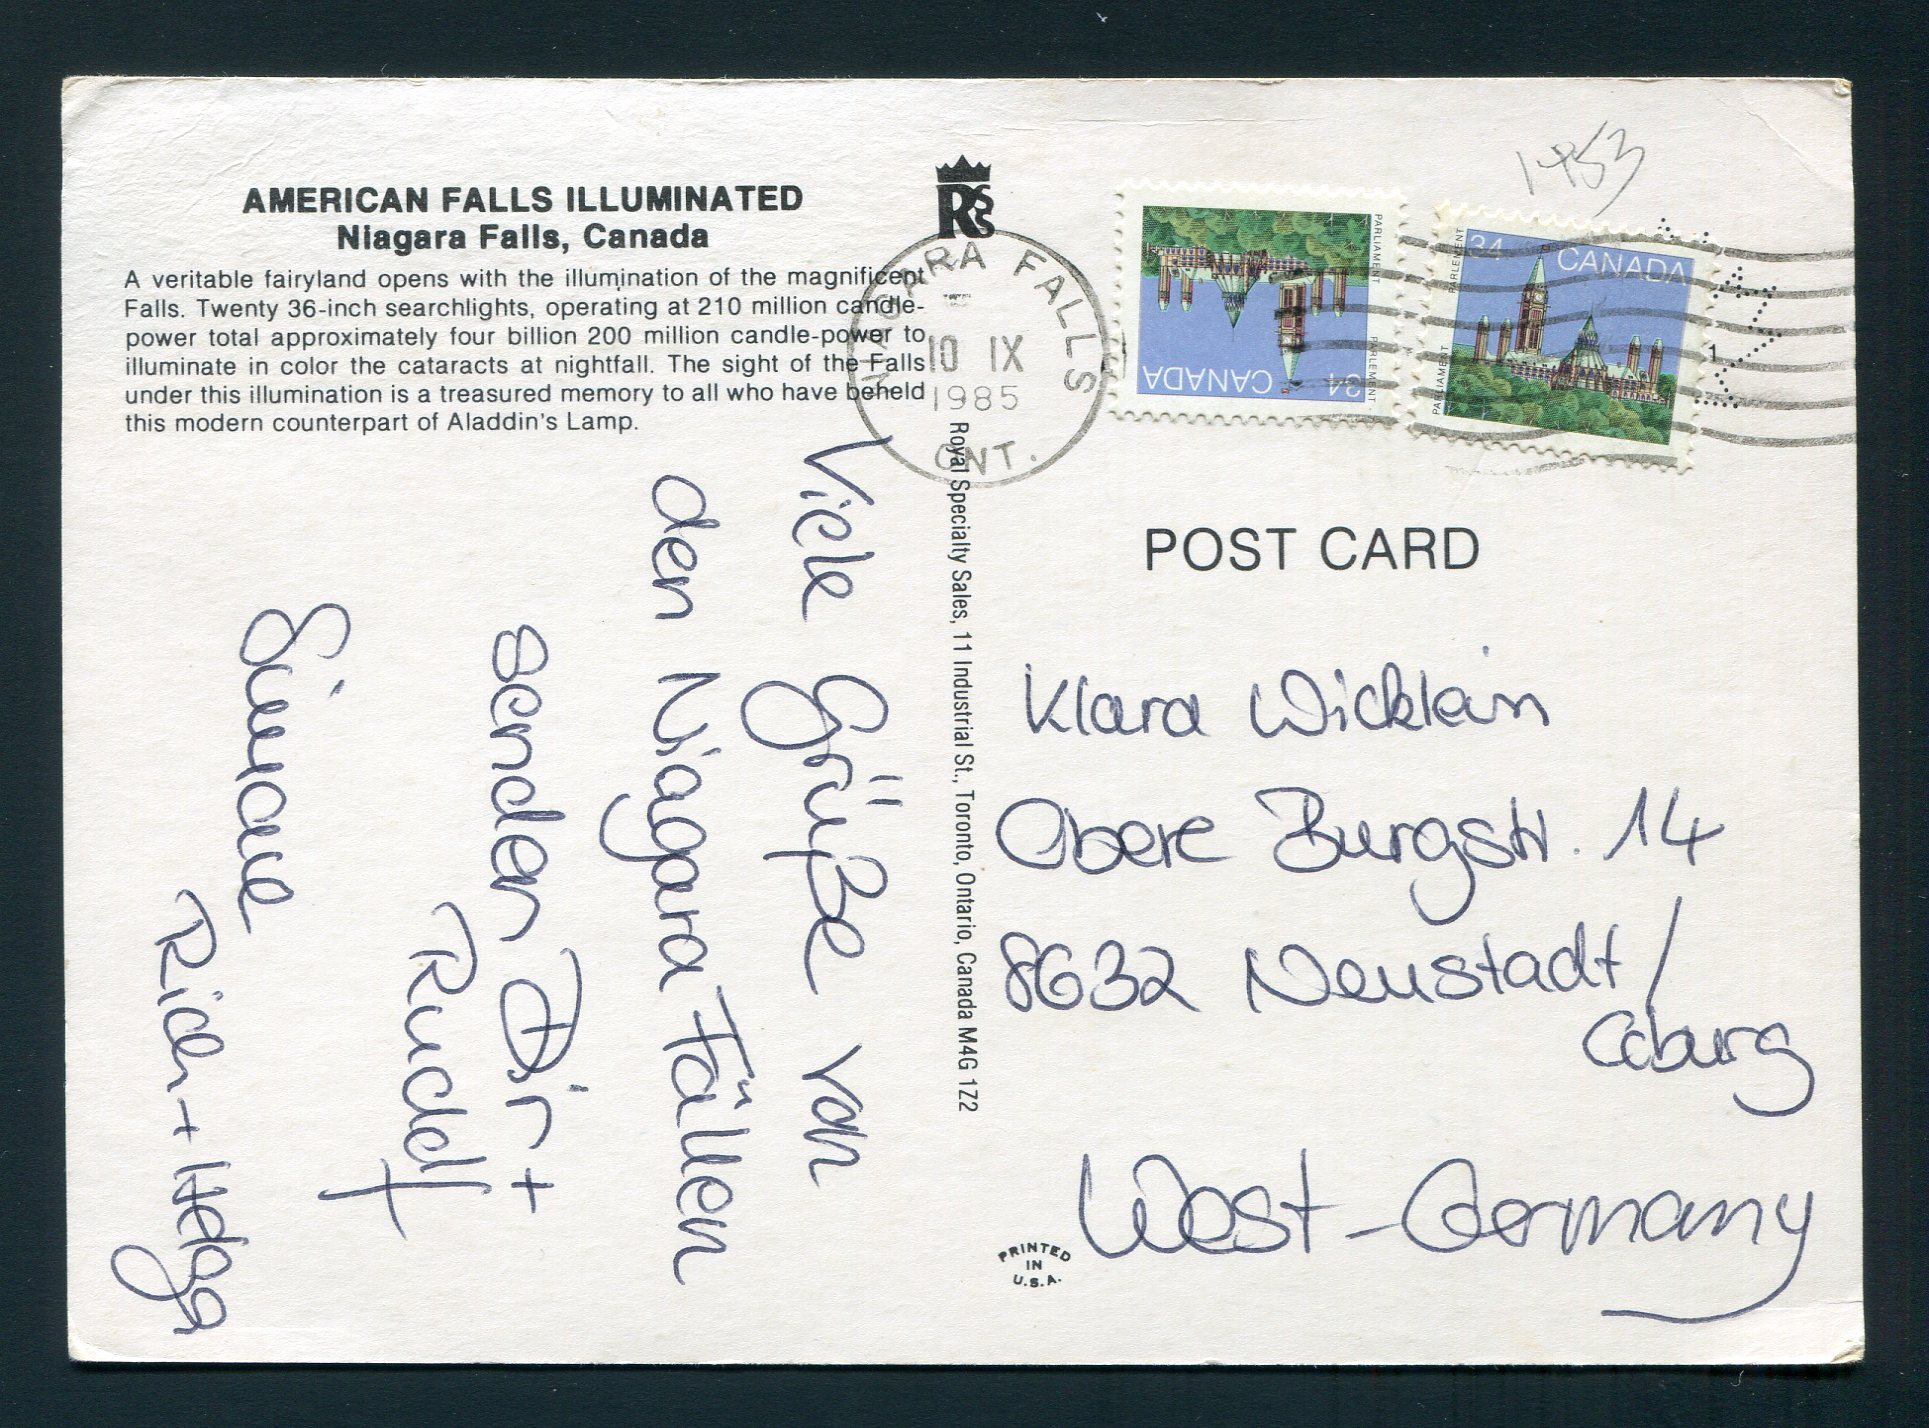 AMERICAN FALLS ILLUMINATED
Niagara Falls, Canada
A veritable fairyland opens with the illumination of the magnificent
Falls. Twenty 36-inch searchlights, operating at 210 million candle-
power total approximately four billion 200 million candle-power to
illuminate in color the cataracts at nightfall. The sight of the Falls
under this illumination is a treasured memory to all who have beheld
this modern counterpart of Aladdin's Lamp.
Viele Grüße von
den Niagara Fällen
senden Dir +
Rudolf
Simone
Rich + Helga
RSS
Royal Specialty Sales, 11 Industrial St., Toronto, Ontario, Canada M4G 1Z2
NIAGARA FALLS
10 IX
1985
ONT.
CANADA
34
PARLIAMENT
PARLEMENT
34
CANADA
PARLIAMENT
PARLEMENT
1
POST CARD
Klara Wicklein
Obere Burgstr. 14
8632 Neustadt/
Coburg
West-Germany
PRINTED
IN
U.S.A.